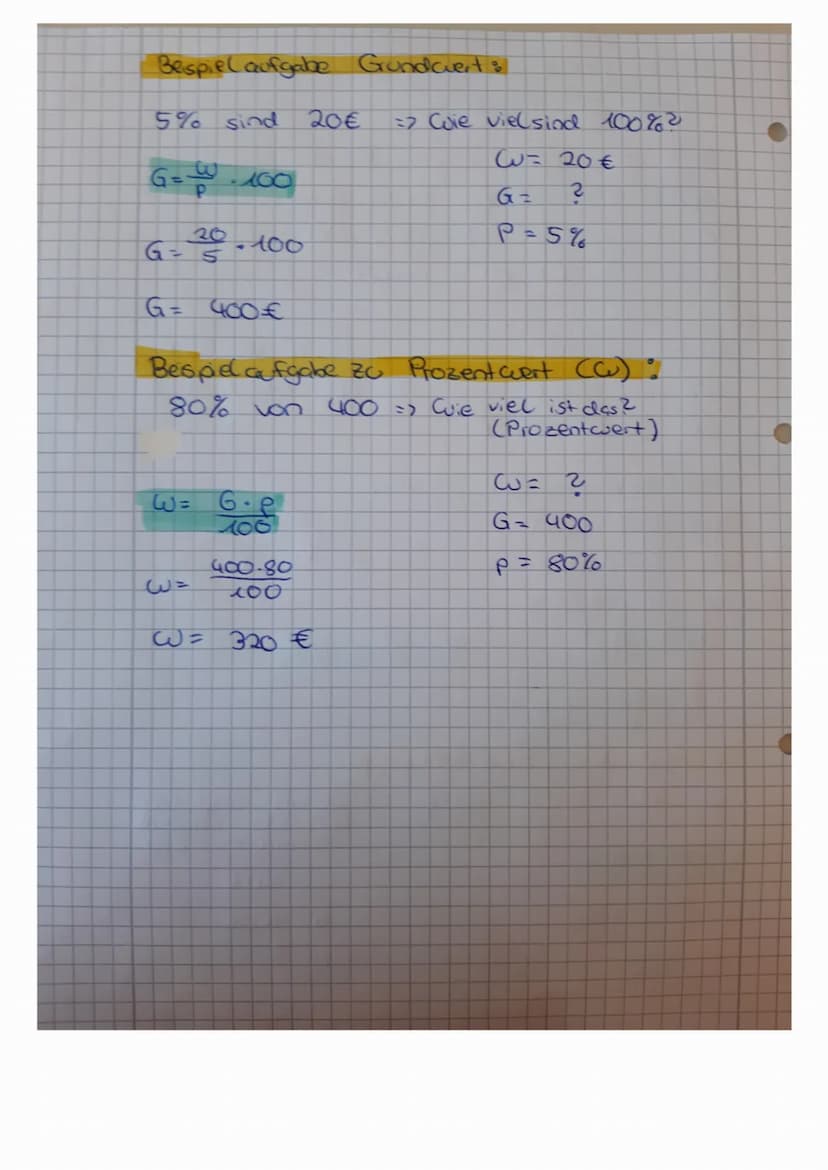 Bespielaufgabe Gundwert:
5% sind 20€ => Wie viel sind 100%?
W= 20€
G= W/p · 100
G= ?
P = 5%
G= 20/5 · 100
G= 400€
Bespielaufgabe zu Prozentwert (W):
80% von 400 => Wie viel ist das?
(Prozentwert)
W= ?
W= G·p/100
G= 400
p = 80%
W= 400·80/100
W= 320 €